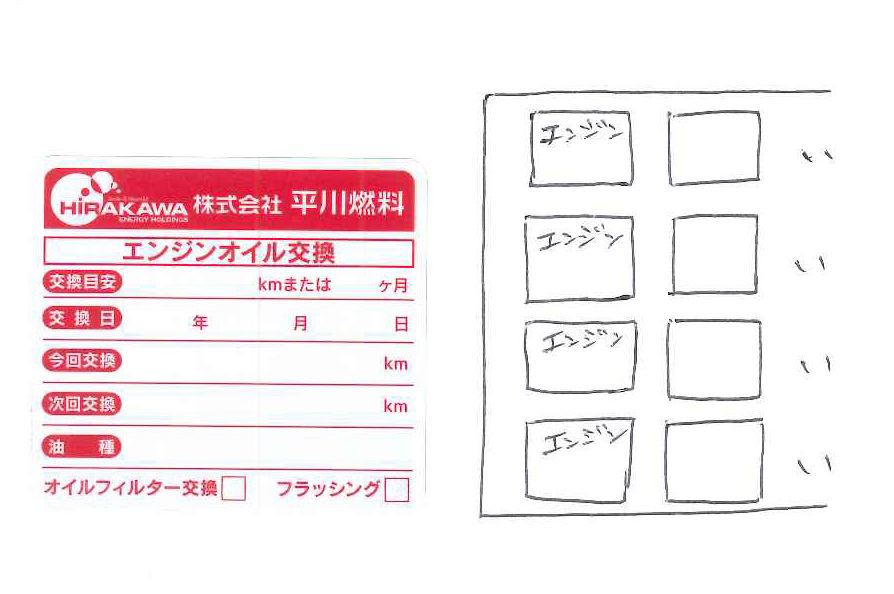 HiRAKAWA
ENERGY HOLDINGS
株式会社 平川燃料
エンジンオイル交換
交換目安 kmまたは ヶ月
交換日 年 月 日
今回交換 km
次回交換 km
油種
オイルフィルター交換 フラッシング
エンジン
エンジン
エンジン
エンジン